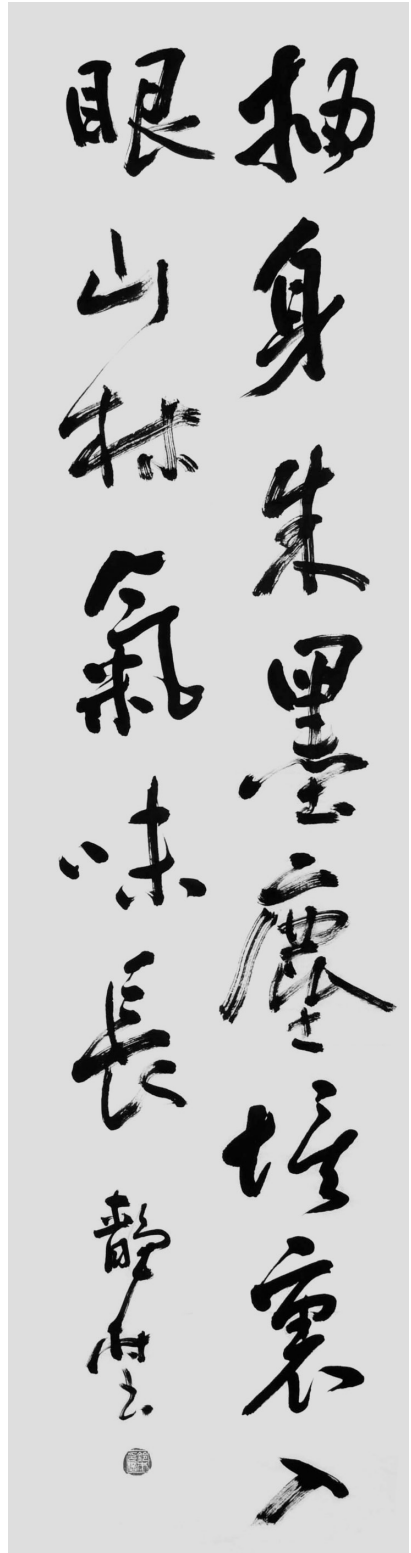 抽身朱墨塵埃裏入
眼山林氣味長 靜村书